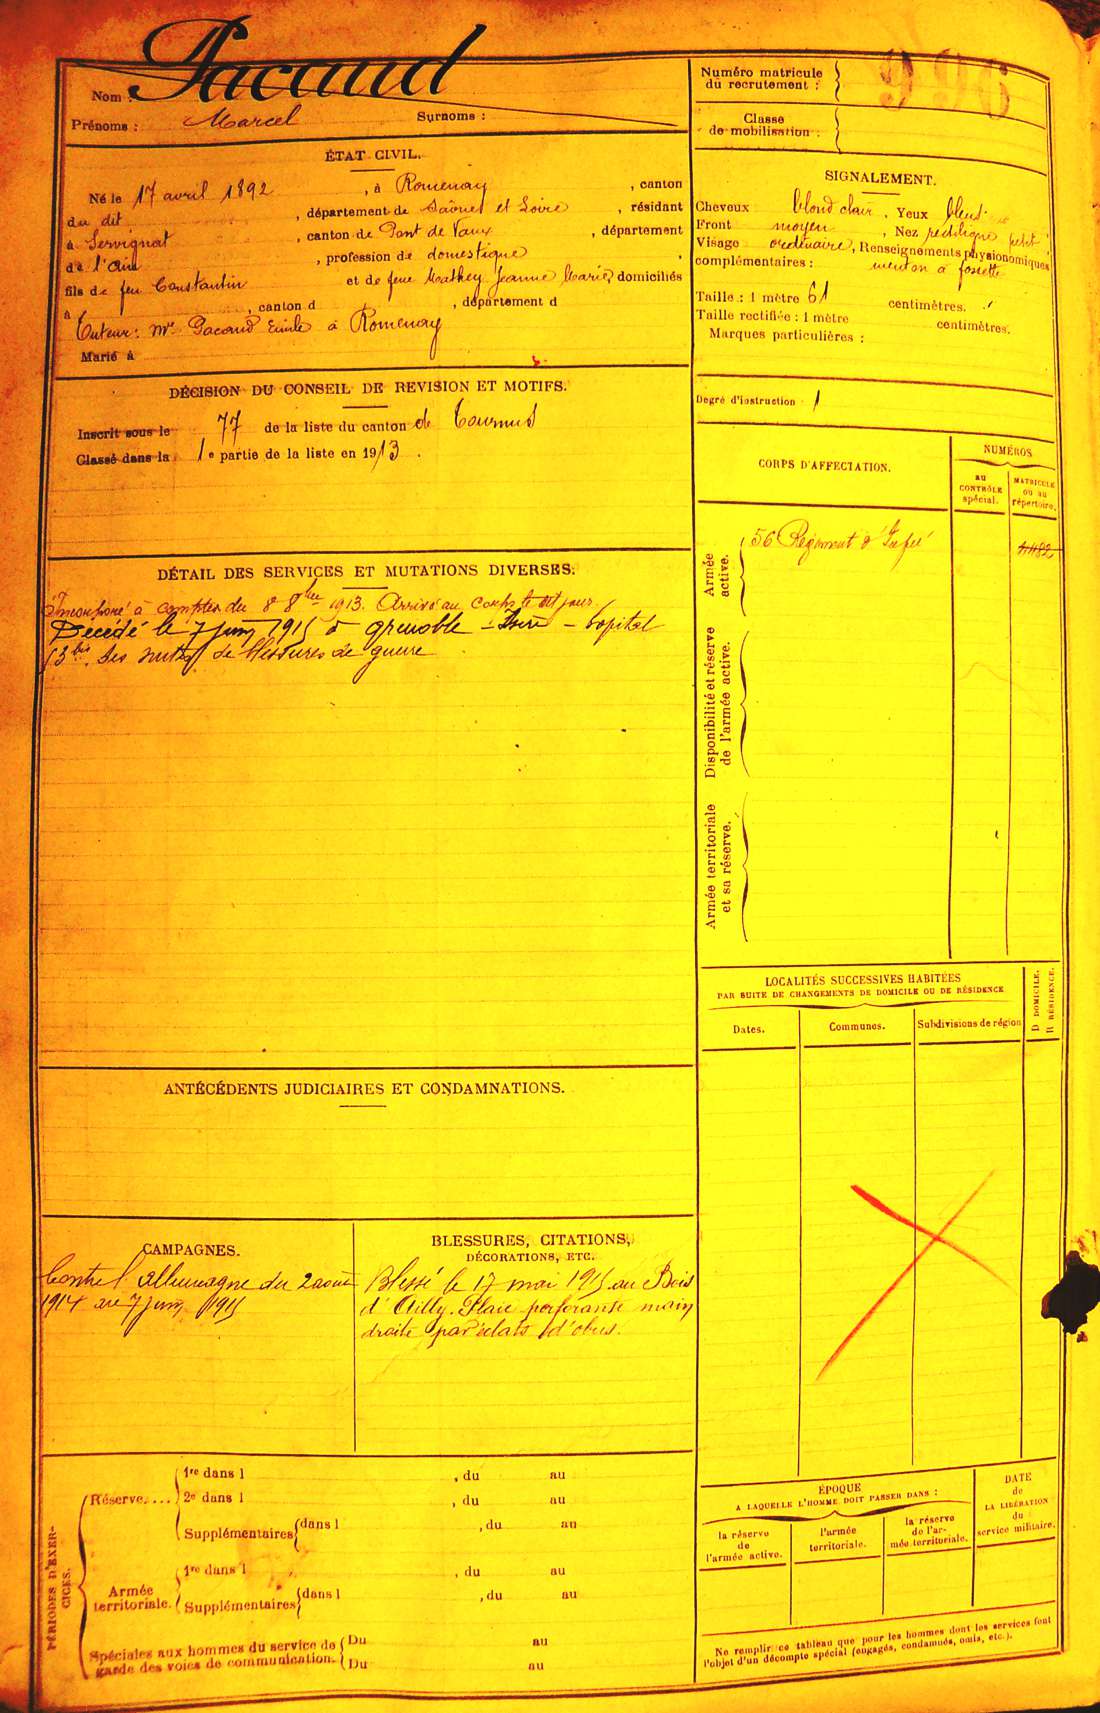 Nom : Pacaud
Prénoms : Marcel Surnoms :
Numéro matricule
du recrutement :
996
Classe
de mobilisation :
ÉTAT CIVIL.
Né le 17 avril 1892, à Romenay, canton
du dit, département de Saône et Loire, résidant
à Servignat, canton de Pont de Vaux, département
de l'Ain, profession de domestique,
fils de feu Constantin et de feue Mathey Jeanne Marie, domiciliés
à , canton d , département d
Tuteur : Mr Pacaud Emile à Romenay
Marié à
SIGNALEMENT.
Cheveux blond clair, Yeux bleus
Front moyen, Nez rectiligne petit
Visage ordinaire, Renseignements physionomiques
complémentaires : menton à fossette
Taille : 1 mètre 61 centimètres.
Taille rectifiée : 1 mètre centimètres.
Marques particulières :
Degré d'instruction 1
DÉCISION DU CONSEIL DE REVISION ET MOTIFS.
Inscrit sous le 77 de la liste du canton de Tournus
Classé dans la 1e partie de la liste en 1913.
CORPS D'AFFECTATION.
NUMÉROS
AU
CONTRÔLE
spécial.
MATRICULE
OU AU
répertoire.
Armée
active.
56 Régiment d'Inf
Disponibilité et réserve
de l'armée active.
Armée territoriale
et sa réserve.
DÉTAIL DES SERVICES ET MUTATIONS DIVERSES.
Incorporé à compter du 8 8bre 1913. Arrivé au corps le dit jour.
Décédé le 7 juin 1915 à Grenoble - Isère - hôpital
bis. des suites de blessures de guerre
LOCALITÉS SUCCESSIVES HABITÉES
PAR SUITE DE CHANGEMENTS DE DOMICILE OU DE RÉSIDENCE
Dates. Communes. Subdivisions de région
D DOMICILE.
R RÉSIDENCE.
ANTÉCÉDENTS JUDICIAIRES ET CONDAMNATIONS.
CAMPAGNES.
Contre l'Allemagne du 2 août
1914 au 7 juin 1915
BLESSURES, CITATIONS,
DÉCORATIONS, ETC.
Blessé le 17 mai 1915 au Bois
d'Ailly. Plaie perforante main
droite par éclats d'obus.
PÉRIODES D'EXER-
CICES.
Réserve....
1re dans l , du au
2e dans l , du au
Supplémentaires dans l , du au
Armée
territoriale.
1re dans l , du au
Supplémentaires dans l , du au
Spéciales aux hommes du service de
garde des voies de communication.
Du au
Du au
ÉPOQUE
A LAQUELLE L'HOMME DOIT PASSER DANS :
la réserve
de
l'armée active.
l'armée
territoriale.
la réserve
de l'ar-
mée territoriale.
DATE
de
LA LIBÉRATION
du
service militaire.
Ne remplir ce tableau que pour les hommes dont les services font
l'objet d'un décompte spécial (engagés, condamnés, omis, etc.).